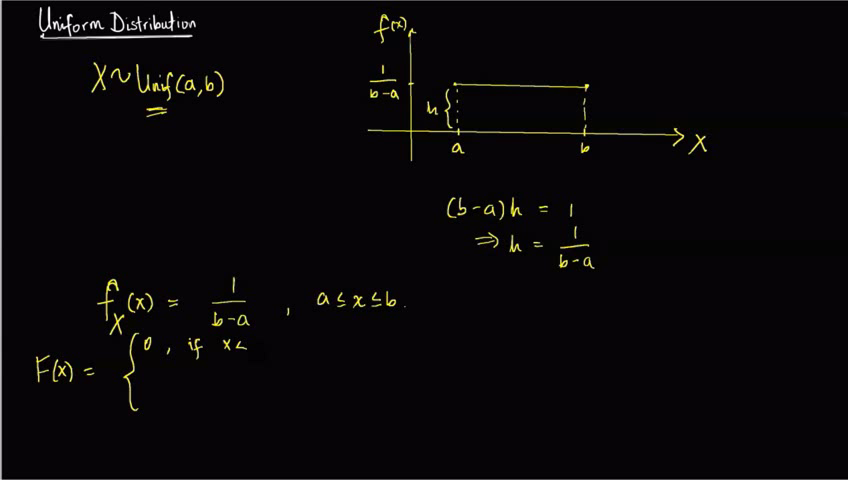 Uniform Distribution
X ~ Unif(a,b)
f(x)
1
b-a
h
a
b
X
(b-a)h = 1
⇒ h = 1/(b-a)
f_X(x) = 1/(b-a) , a ≤ x ≤ b.
F(x) = { 0 , if x <